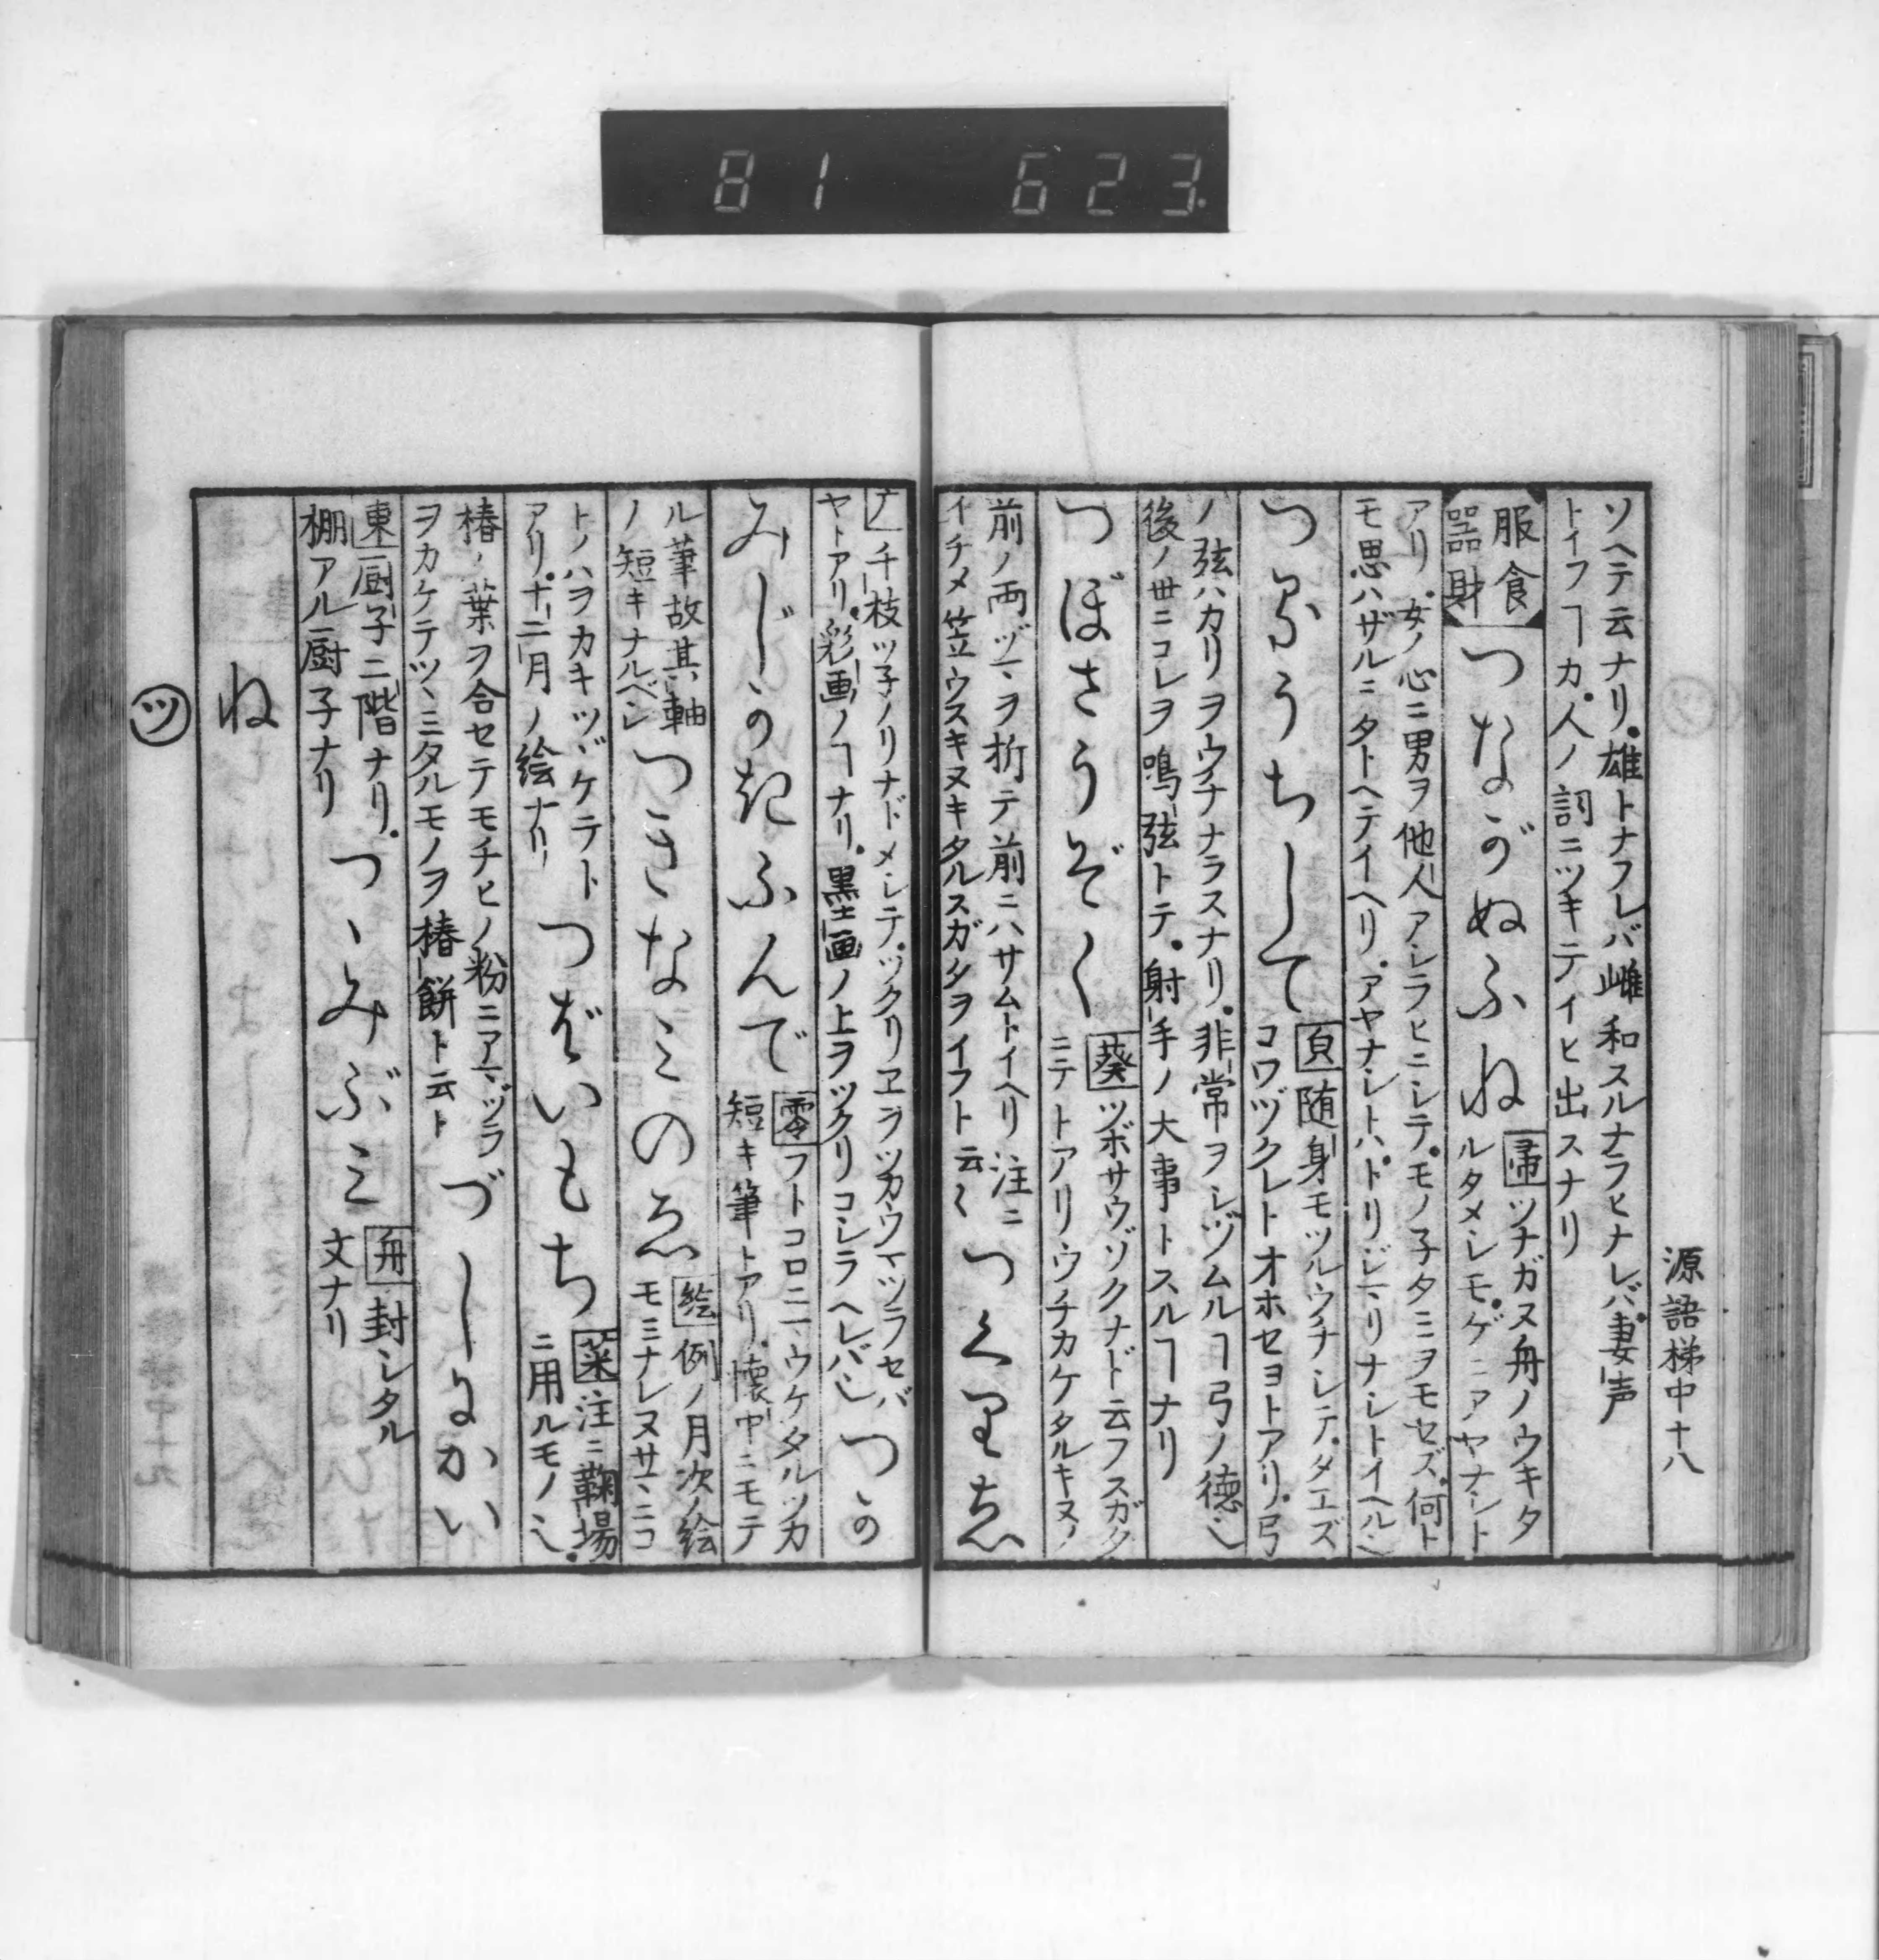 81 623
源語梯中十八
ソヘテ云ナリ。雄トナフレバ雌和スルナラヒナレバ。妻声
トイフヿカ。人ノ詞ニツキテイヒ出スナリ
服食
器財
つながぬふね
帚 ツナガヌ舟ノウキタ
ルタメシモ。ゲニアヤナシト
アリ。女ノ心ニ男ヲ他人アシラヒニシテ。モノ子タミヲモセズ。何ト
モ思ハザルニタトヘテイヘリ。アヤナシトハ。トリジマリナシトイヘル也
つるうちして
随身モツルウチシテ。タエズ
コワヅクレトオホセヨトアリ。弓
ノ弦ハカリヲウチナラスナリ。非常ヲシヅムルヿ弓ノ徳也
後ノ世ニコレヲ鳴弦トテ。射手ノ大事トスルヿナリ
つぼさうぞく
葵 ツボサウゾクナド云フスガタ
ニテトアリウチカケタルキヌノ
前ノ両ヅマヲ折テ前ニハサムトイヘリ注ニ
イチメ笠ウスキヌキタルスガタヲイフト云々
つくりゑ
千枝ツ子ノリナドメシテ。ツクリヱヲツカウマツラセバ
ヤトアリ。彩画ノヿナリ。墨画ノ上ヲツクリコシラヘレバ也
つゝの
みじゝのきふんで
零 フトコロニマウケタルツカ
短キ筆トアリ。懐中ニモテ
ル筆故其軸
ノ短キナルベシ
つきなミのゑ
絵 例ノ月次ノ絵
モミナレヌサマニコ
トノハヲカキツヾケテト
アリ。十二月ノ絵ナリ
つばいもち
菜 注ニ鞠場
ニ用ルモノ也。
椿ノ葉ヲ合セテモチヒノ粉ニアマヅラ
ヲカケテツヽミタルモノヲ椿餅ト云ト
づしにかい
東 厨子二階ナリ。
棚アル厨子ナリ
つゝみぶミ
舟 封シタル
文ナリ
ね
ツ